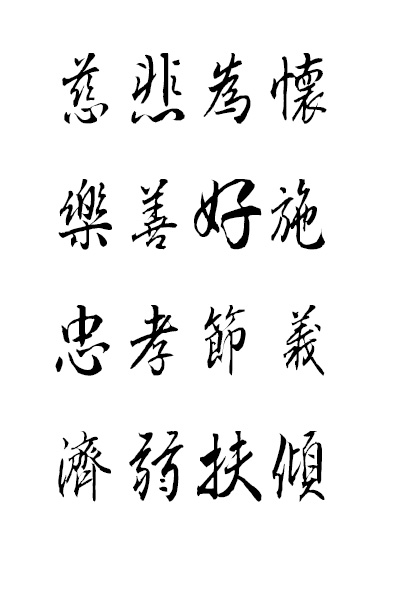 慈悲為懷
樂善好施
忠孝節義
濟弱扶傾